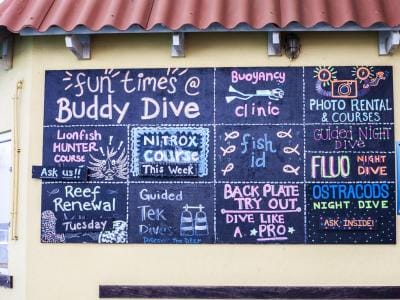 fun times @
Buddy Dive
Buoyancy
clinic
PHOTO RENTAL
& COURSES
Lionfish
HUNTER
COURSE
Ask us!!
NITROX
COURSE
This Week
fish
id
Guided Night
Dive
FLUO NIGHT
DIVE
Reef
Renewal
Tuesday
Guided
Tek
Dives
Discover the Deep
BACK PLATE
TRY OUT
DIVE LIKE
A PRO
OSTRACODS
NIGHT DIVE
ASK INSIDE!